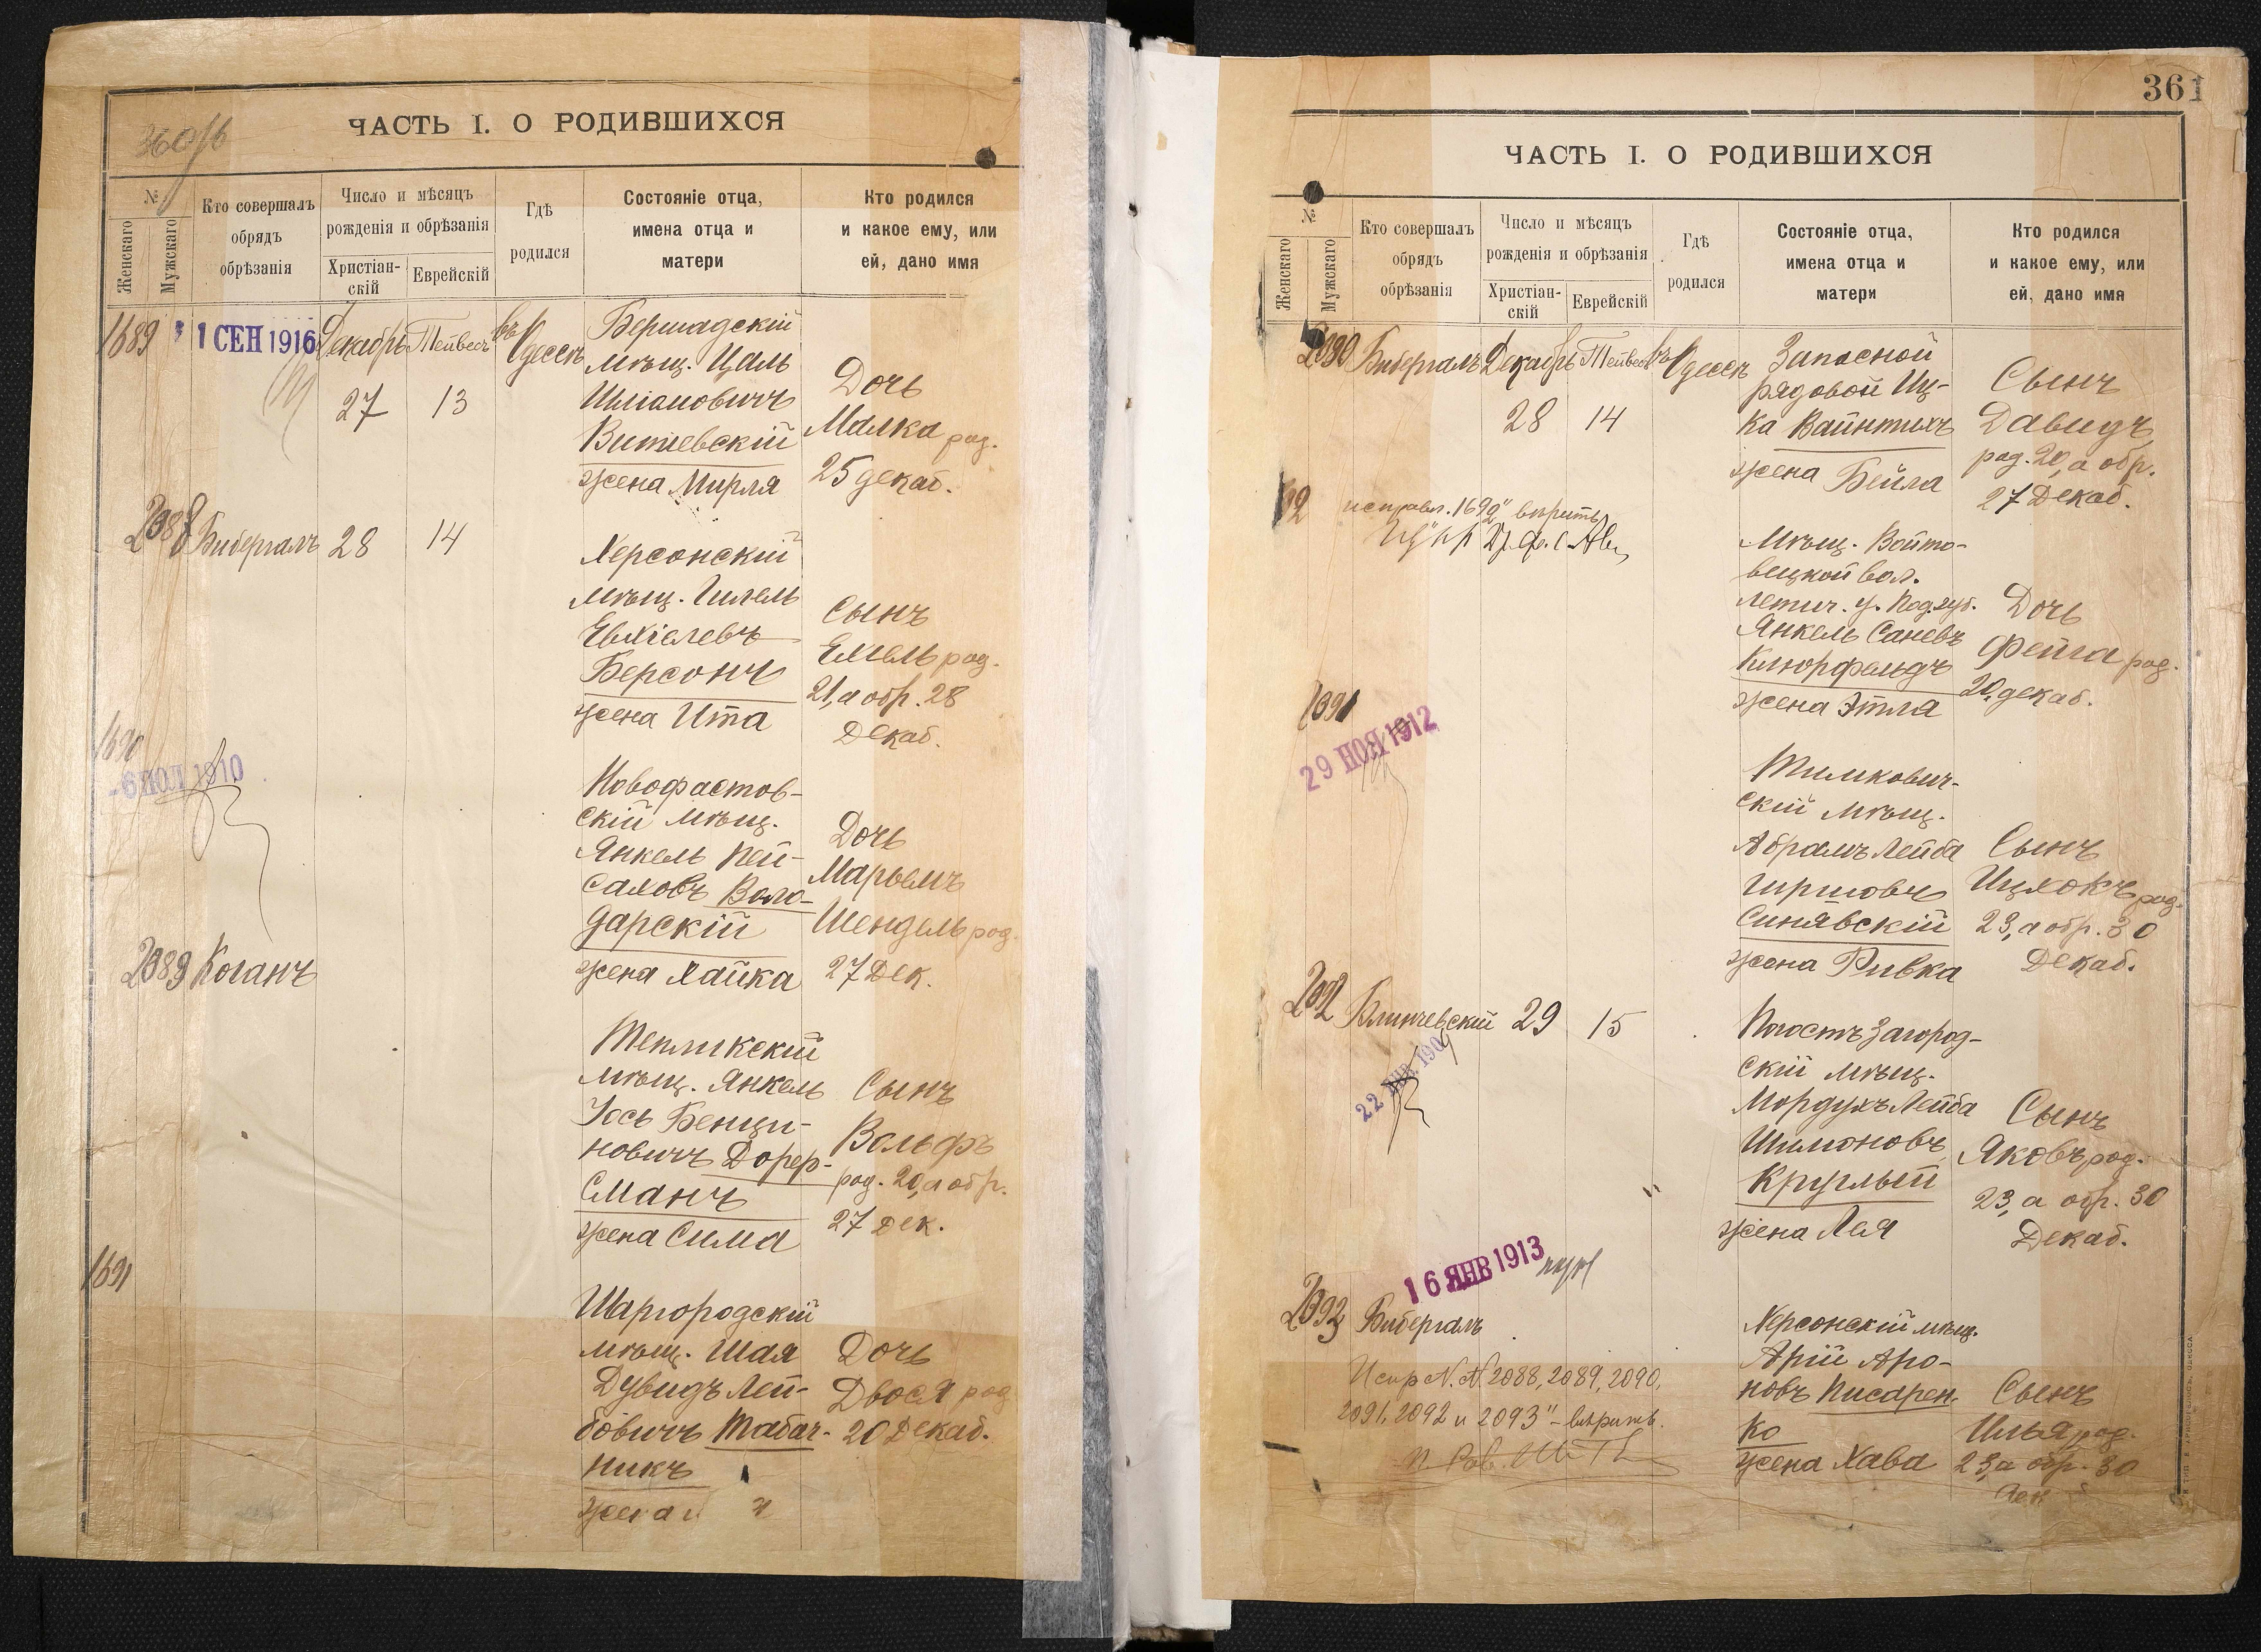 360/б
ЧАСТЬ I. О РОДИВШИХСЯ
№
Женскаго
Мужскаго
Кто совершалъ
обрядъ
обрѣзанія
Число и мѣсяцъ
рожденія и обрѣзанія
Христіан-
скій
Еврейскій
Гдѣ
родился
Состояніе отца,
имена отца и
матери
Кто родился
и какое ему, или
ей, дано имя
1689
1 СЕН 1916
Декабрь Тейвесъ въ Одессѣ
27 13
Бершадскій
мѣщ. Цаль
Шліомовичъ
Витіевскій
жена Мирля
Дочь
Малка род.
25 декаб.
2088 Бибергалъ 28 14
Херсонскій
мѣщ. Гилель
Евхіелевъ
Берсонъ
жена Ита
Сынъ
Емель род.
21, а обр. 28
Декаб.
1690
-6 ИЮЛ 1910
Новофастов-
скій мѣщ.
Янкель Пей-
саховъ Воло-
дарскій
жена Хайка
Дочь
Марьемъ
Шендель род.
27 Дек.
2089 Коганъ
Тепликскій
мѣщ. Янкель
Іось Бенци-
новичъ Дорф-
сманъ
жена Сима
Сынъ
Вольфъ
род. 20, а обр.
27 Дек.
1691
Шаргородскій
мѣщ. Шая
Дувидъ Лей-
бовичъ Табач-
никъ
жена
Дочь
Двося род
20 Декаб.
361
ЧАСТЬ I. О РОДИВШИХСЯ
№
Женскаго
Мужскаго
Кто совершалъ
обрядъ
обрѣзанія
Число и мѣсяцъ
рожденія и обрѣзанія
Христіан-
скій
Еврейскій
Гдѣ
родился
Состояніе отца,
имена отца и
матери
Кто родился
и какое ему, или
ей, дано имя
2090 Бибергалъ Декабрь Тейвесъ въ Одессѣ
28 14
Запасной
рядовой Иц-
ка Вайнтихъ
жена Бейла
Сынъ
Давидъ
род. 20, а обр.
27 Декаб.
исправл. 1692" вѣрить
Мѣщ. Войто-
вецкой вол.
Летич. у. Под. губ.
Янкель Саневъ
Клюрфельдъ
жена Этля
Дочь
Фейга род.
20, декаб.
2091
29 НОЯ 1912
Тимкович-
скій мѣщ.
Абрамъ Лейба
Гиршовъ
Синявскій
жена Ривка
Сынъ
Ицхокъ род.
23, а обр. 30
Декаб.
2092 Клинчевскій 29 15
22 ЯНВ. 190
Погостъ Загород-
скій мѣщ.
Мордухъ Лейба
Шимоновъ
Круглый
жена Лея
Сынъ
Яковъ род.
23, а обр. 30
Декаб.
16 ЯНВ 1913
2093 Бибергалъ
Херсонскій мѣщ.
Арій Аро-
новъ Писарен-
ко
жена Хава
Сынъ
Илья род.
23, а обр. 30
Дек
Испр. N. N. 2088, 2089, 2090,
2091, 2092 и 2093" – вѣрить.